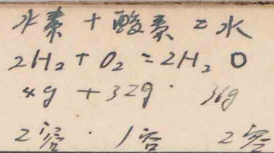 水素 + 酸素 = 水
2H₂ + O₂ = 2H₂O
4g + 32g · 36g
2容 · 1容 2容